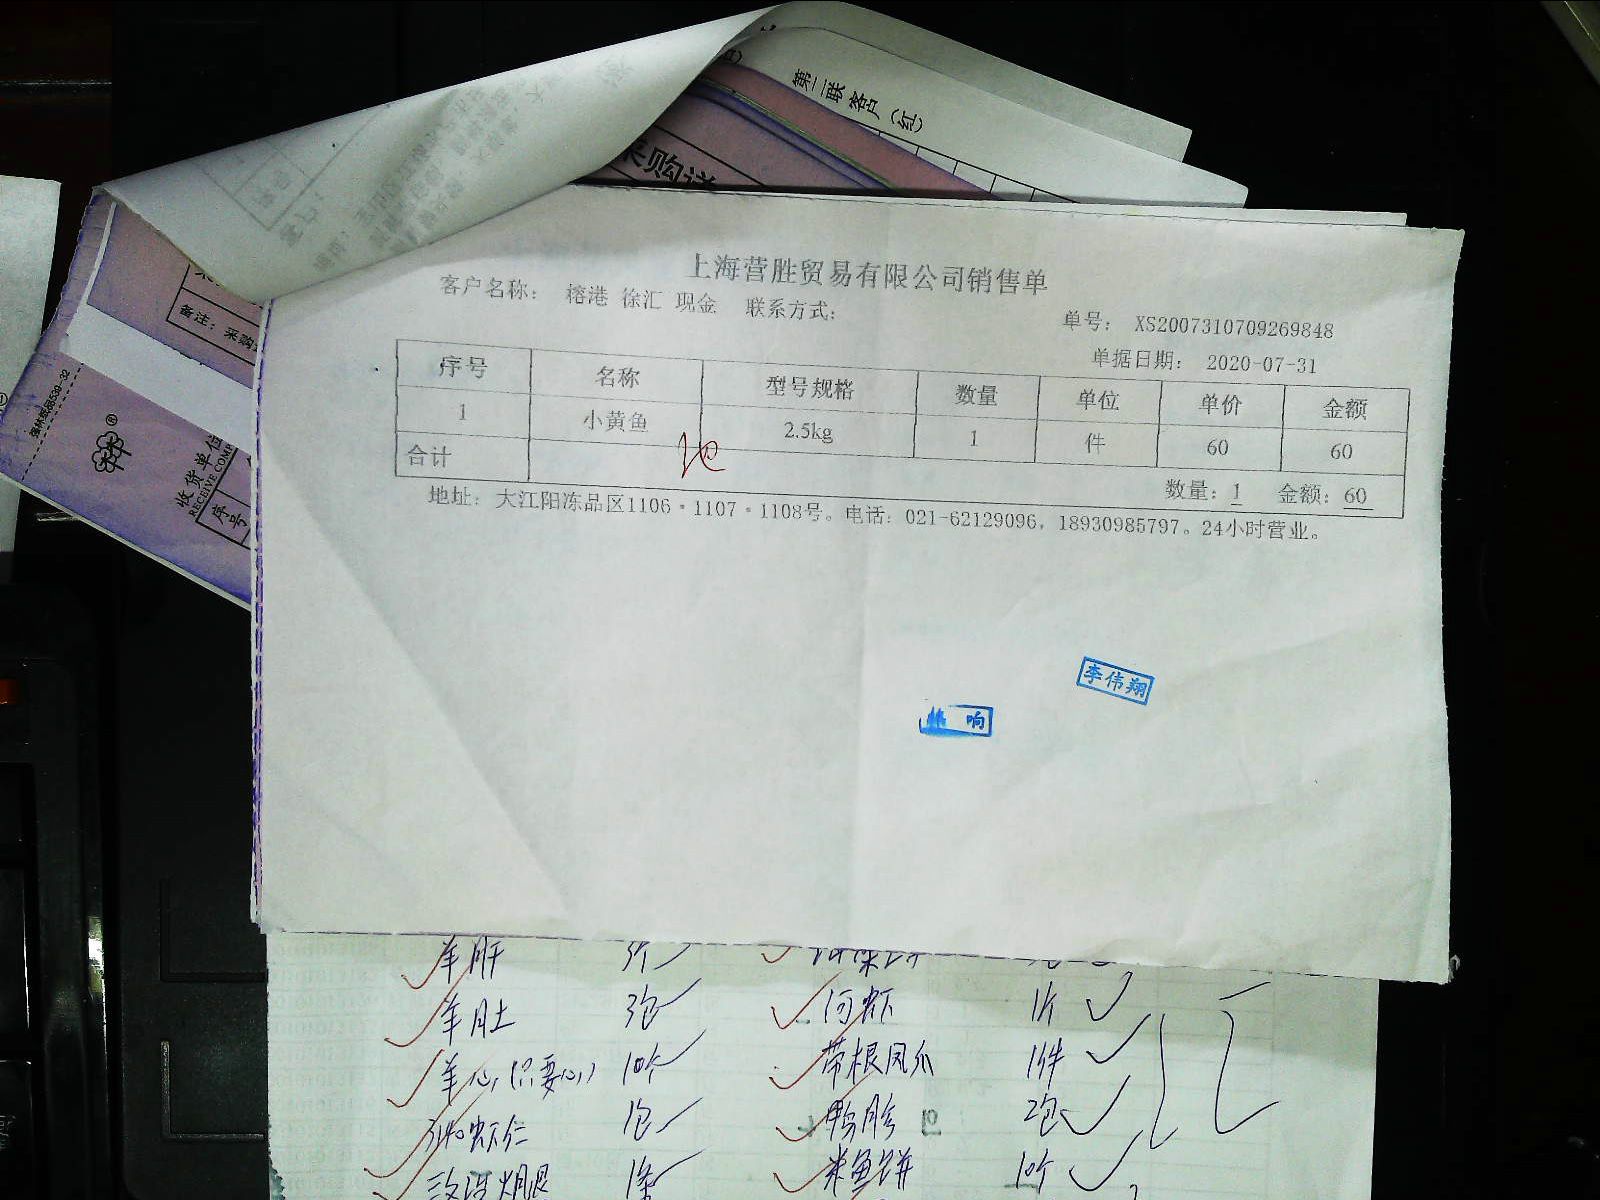 第二联客户（红）
采购详
备注：采购
强林纸品8539-32
收货单位
RECEIVE COMP
序号
上海营胜贸易有限公司销售单
客户名称： 榕港 徐汇 现金 联系方式：
单号： XS2007310709269848
单据日期： 2020-07-31
序号 名称 型号规格 数量 单位 单价 金额
1 小黄鱼 2.5kg 1 件 60 60
合计 数量：1 金额：60
地址：大江阳冻品区1106·1107·1108号。电话：021-62129096，18930985797。24小时营业。
李伟翔
响
羊肝
羊肚 3包 河虾 1斤
羊心（只要心） 10个 带根凤爪 1件
虾仁 1包 鸭胗 2包
火腿 1条 米鱼饼 10个